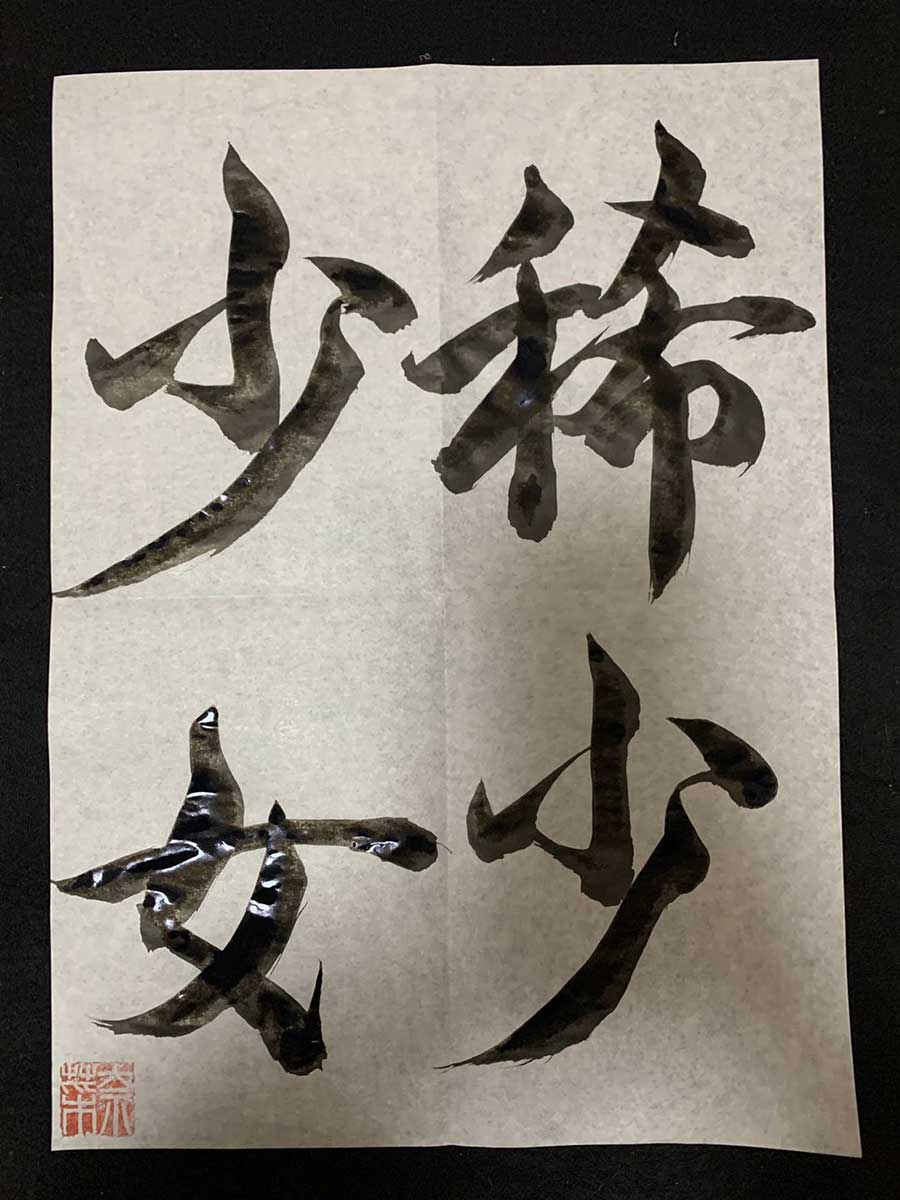 稀少
少女